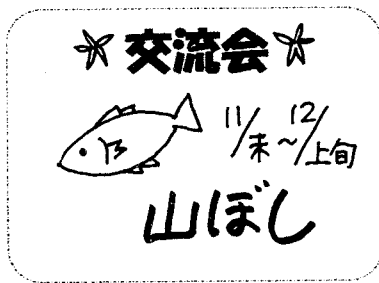 交流会
11/末~12/上旬
山ぼし